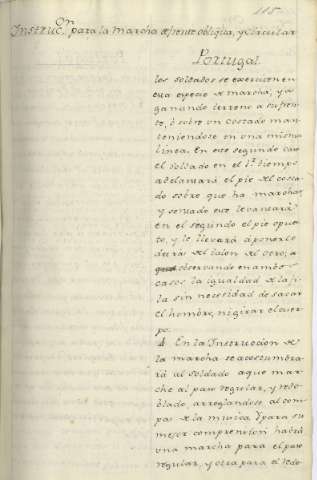 115
Instruc.on para la marcha de frente obliqua, y circular
Portugal
los soldados se exerciten en
esta especie de marcha, ya
ganando terreno a su fren
te, ò sobre un costado man
teniendose en una misma
linea. En este segundo caso
el soldado en el 1.º tiempo
adelantará el pie del costa
do sobre que ha marchar,
y sentado este levantará
en el segundo el pie opues
to, y le llevará à ponerlo
detrás del talon del otro;
observando en ambos
casos la igualdad de la fi
la sin necesidad de sacar
el hombro, ni girar el cuer
po.
4. En la Instruccion de
la marcha se acostumbra
rá al soldado a que mar
che al paso regular, y redo
blado, arreglandose al com
pas de la musica. Para su
mejor comprencion habrá
una marcha para el paso
regular, y otra para el redo